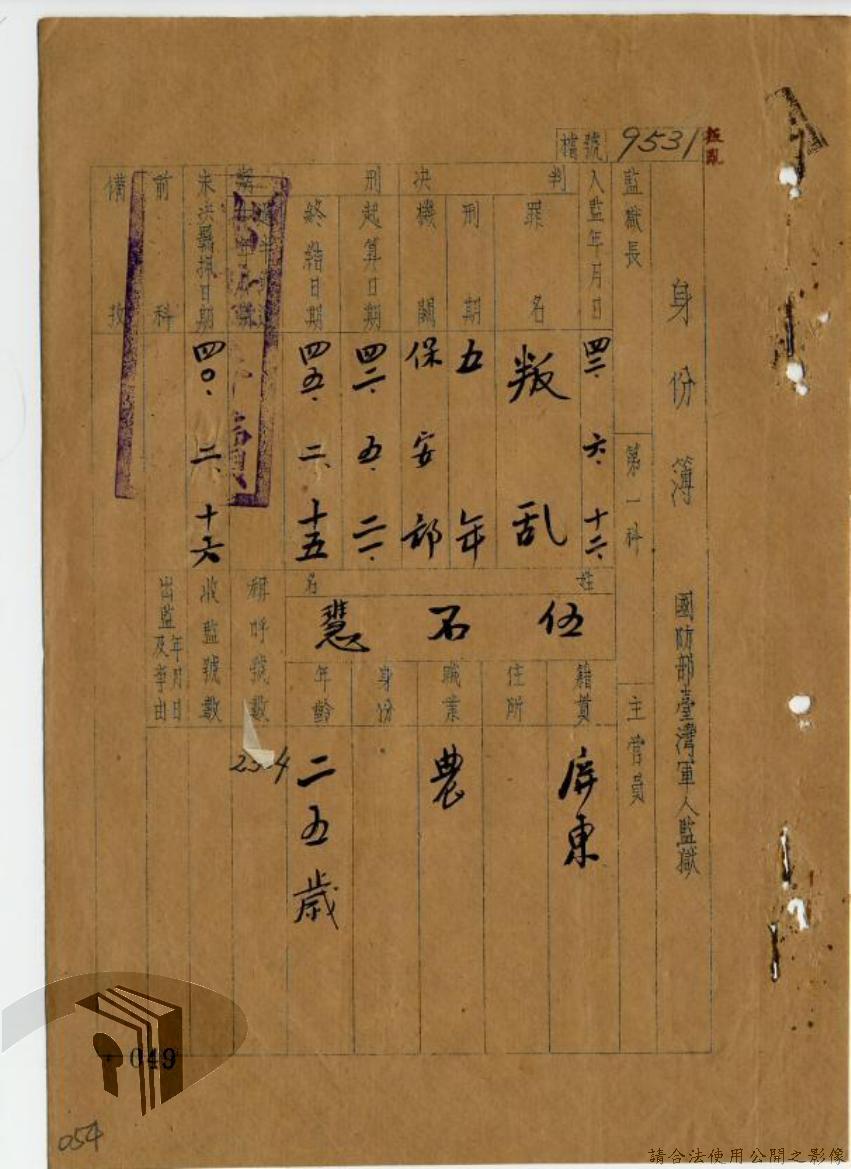 檔號 9531
叛亂
身份簿 國防部臺灣軍人監獄
監獄長 第一科 主管員
入監年月日 四二、六、十二、
判決
罪名 叛乱
刑期 五年
機關 保安部
刑期
起算日期 四二、五、二一、
終結日期 四五、二、十五
未決羈押日期 四〇、二、十六
前科
備攷
姓名 伍石慧
籍貫 屏東
住所
職業 農
身份
年齡 二五歲
稱呼號數
收監號數
出監年月日及事由
049
054
請合法使用公開之影像